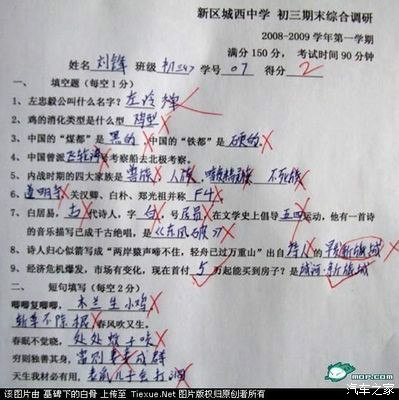 新区城西中学 初三期末综合调研
2008-2009 学年第一学期
满分 150 分， 考试时间 90 分钟
姓名 刘锋 班级 初三 学号 07 得分 2
一、 填空题（每空 1 分）
1、左忠毅公叫什么名字？ 左冷禅
2、鸡的消化类型是什么型
3、中国的“煤都”是 黑的 ，中国的“铁都”是 硬的 。
4、中国曾派 号考察船去北极考察。
5、内战时期的四大家族是 兽族 人族 不死族
6、 道明寺 关汉卿、白朴、郑光祖并称 F4 。
7、白居易， 古 代诗人，字 白 ，号 居易 在文学史上倡导 五四 运动，他有一首诗
的音乐描写已成千古绝唱，是 《东风破》
8、诗人归心似箭写成“两岸猿声啼不住，轻舟已过万重山”出自 诗人的
9、经济危机爆发，市场有变化，现在首付 5 万起能买到房子？是 城河·新
二、 短句填写（每空 2 分）
唧唧复唧唧， 木兰生小鸡
斩草不除根 春风吹又生。
春眠不觉晓， 处处蚊子咬
穷则独善其身， 富则妻妾成群
天生我材必有用， 老鼠儿子会打洞
该图片由 墓碑下的白骨 上传至 Tiexue.Net 图片版权归原创者所有
MOP.com
汽车之家